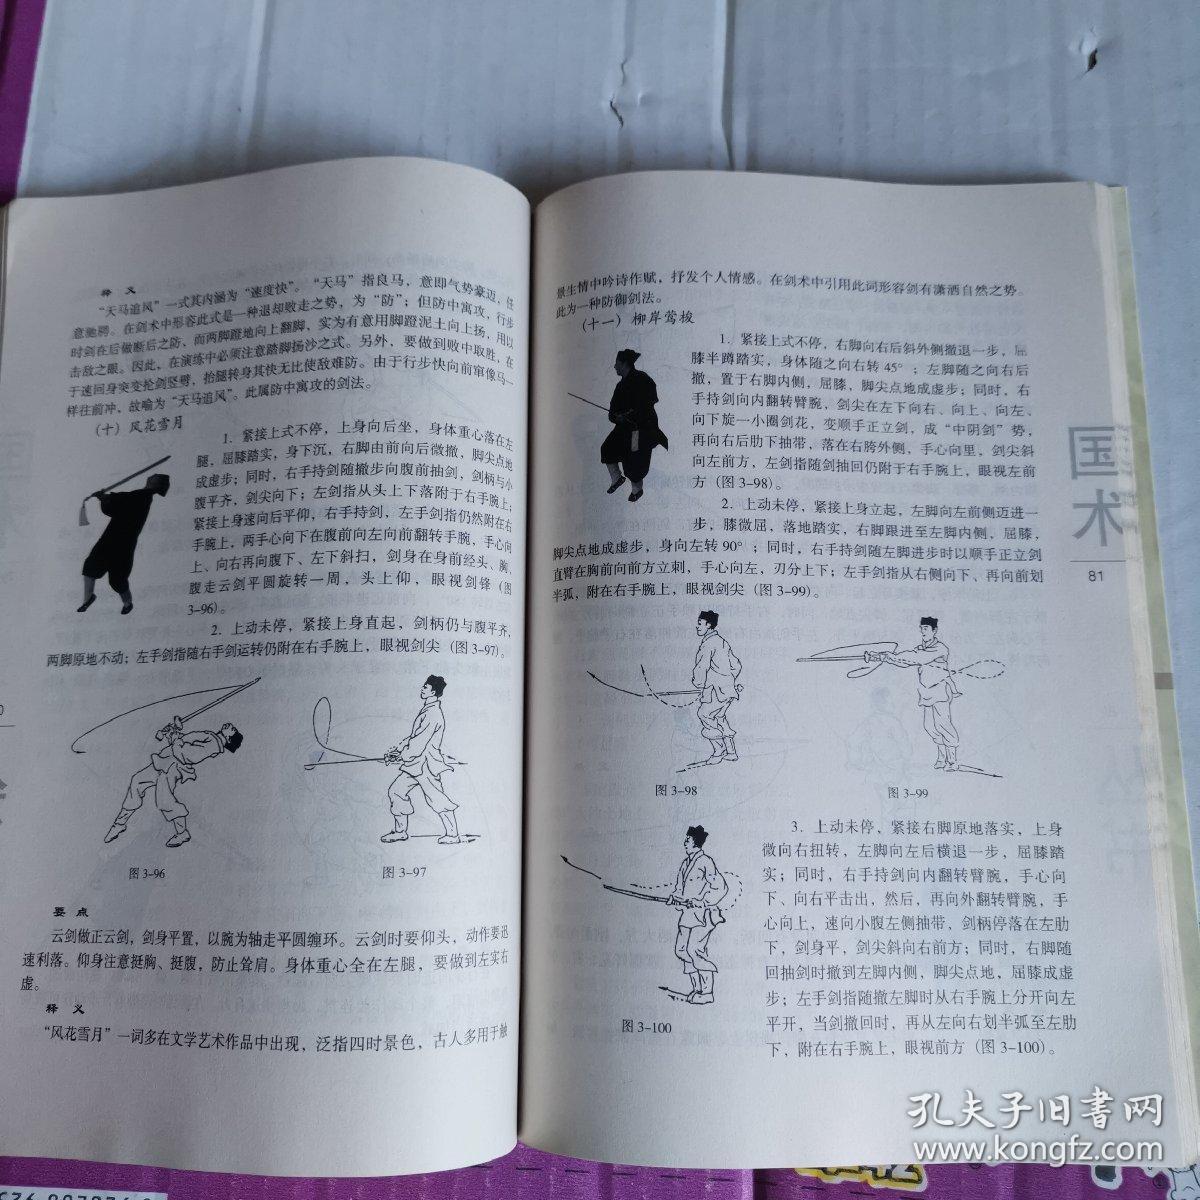 释 义
“天马追风”一式其内涵为“速度快”。“天马”指良马，意即气势豪迈，任
意驰骋。在剑术中形容此式是一种退却败走之势，为“防”；但防中寓攻，行步
时剑在后做断后之防、而两脚蹬地向上翻脚，实为有意用脚蹬泥土向上扬，用以
击敌之眼。因此，在演练中必须注意踏脚扬沙之式。另外，要做到败中取胜，在
于速回身突变抢剑竖劈，抬腿转身其快无比使敌难防。由于行步快向前窜像马一
样往前冲、故喻为“天马追风”。此属防中寓攻的剑法。
（十）风花雪月
1. 紧接上式不停，上身向后坐，身体重心落在左
腿，屈膝踏实，身下沉，右脚由前向后微撤，脚尖点地
成虚步；同时，右手持剑随撤步向腹前抽剑，剑柄与小
腹平齐，剑尖向下；左剑指从头上下落附于右手腕上；
紧接上身速向后平仰，右手持剑，左手剑指仍然附在右
手腕上，两手心向下在腹前向左向前翻转手腕，手心向
上、向右再向腹下、左下斜扫，剑身在身前经头、胸、
腹走云剑平圆旋转一周，头上仰，眼视剑锋（图
3-96）。
2. 上动未停，紧接上身直起，剑柄仍与腹平齐，
两脚原地不动；左手剑指随右手剑运转仍附在右手腕上，眼视剑尖（图 3-97）。
图 3-96
图 3-97
要 点
云剑做正云剑，剑身平置，以腕为轴走平圆缠环。云剑时要仰头，动作要迅
速利落。仰身注意挺胸、挺腹，防止耸肩。身体重心全在左腿，要做到左实右
虚。
释 义
“风花雪月”一词多在文学艺术作品中出现，泛指四时景色，古人多用于触
景生情中吟诗作赋，抒发个人情感。在剑术中引用此词形容剑有潇洒自然之势。
此为一种防御剑法。
（十一）柳岸莺梭
1. 紧接上式不停，右脚向右后斜外侧撤退一步，屈
膝半蹲踏实，身体随之向右转 45°；左脚随之向右后
撤，置于右脚内侧，屈膝，脚尖点地成虚步；同时，右
手持剑向内翻转臂腕，剑尖在左下向右、向上、向左、
向下旋一小圈剑花，变顺手正立剑，成“中阴剑”势，
再向右后肋下抽带，落在右胯外侧，手心向里，剑尖斜
向左前方，左剑指随剑抽回仍附于右手腕上，眼视左前
方（图 3-98）。
2. 上动未停，紧接上身立起，左脚向左前侧迈进一
步，膝微屈，落地踏实，右脚跟进至左脚内侧，屈膝，
脚尖点地成虚步，身向左转 90°；同时，右手持剑随左脚进步时以顺手正立剑
直臂在胸前向前方立刺，手心向左，刃分上下；左手剑指从右侧向下、再向前划
半弧，附在右手腕上，眼视剑尖（图 3-99）。
图 3-98
图 3-99
3. 上动未停，紧接右脚原地落实，上身
微向右扭转，左脚向左后横退一步，屈膝踏
实；同时，右手持剑向内翻转臂腕，手心向
下、向右平击出，然后，再向外翻转臂腕，手
心向上，速向小腹左侧抽带，剑柄停落在左肋
下，剑身平，剑尖斜向右前方；同时，右脚随
回抽剑时撤到左脚内侧，脚尖点地，屈膝成虚
步；左手剑指随撤左脚时从右手腕上分开向左
平开，当剑撤回时，再从左向右划半弧至左肋
下，附在右手腕上，眼视前方（图 3-100）。
图 3-100
国术
81
孔夫子旧书网
www.kongfz.com